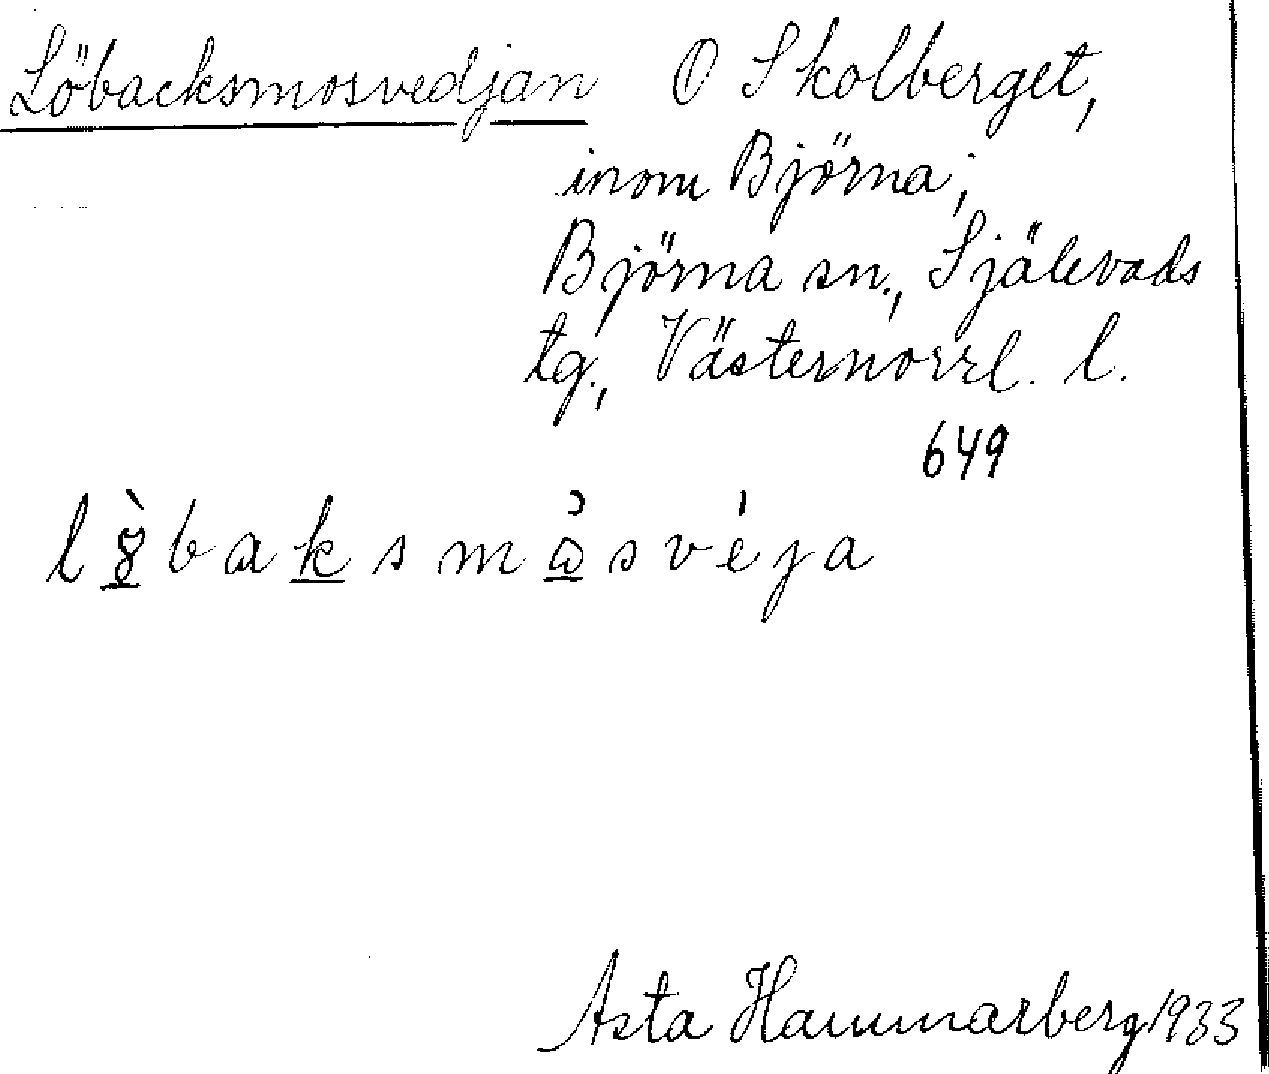 Löbacksmosvedjan O Skolberget,
inom Björna;
Björna sn., Själevads
tg., Västernorrl. l.
649
Asta Hammarberg 1933